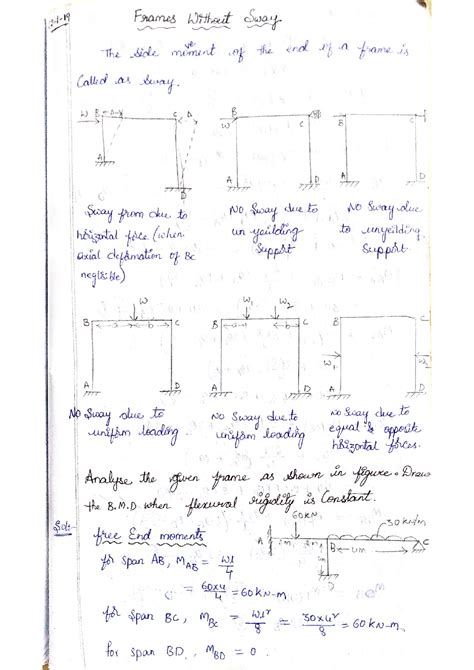 Frames Without Sway
The side movement of the end of a frame is
Called as Sway.
W B Δ C Δ
A D
B W C
A D
B C
A D
Sway from due to
horizontal force (when
axial deformation of BC
neglrible)
No Sway due to
un yeilding
Support
No Sway due
to unyeilding
Support
W
B a b C
A D
W1 W2
B a b C
A D
B C
W1 W2
A D
No Sway due to
uniform loading.
No Sway due to
uniform loading
No Sway due to
equal & opposite
horizontal forces.
Analyse the given frame as shown in figure. Draw
the B.M.D when flexural rigidity is Constant.
Sol:-
free End moments
60KN 30KN/m
A 2m 2m B 4m C
D
for span AB, MAB = Wl/4
= 60x4/4 = 60KN-m
for span BC, MBC = Wl²/8 = 30x4²/8 = 60KN-m.
For span BD, MBD = 0.